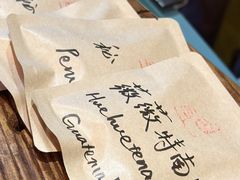 Peru
薇薇特南
Huehuetena
Guatema